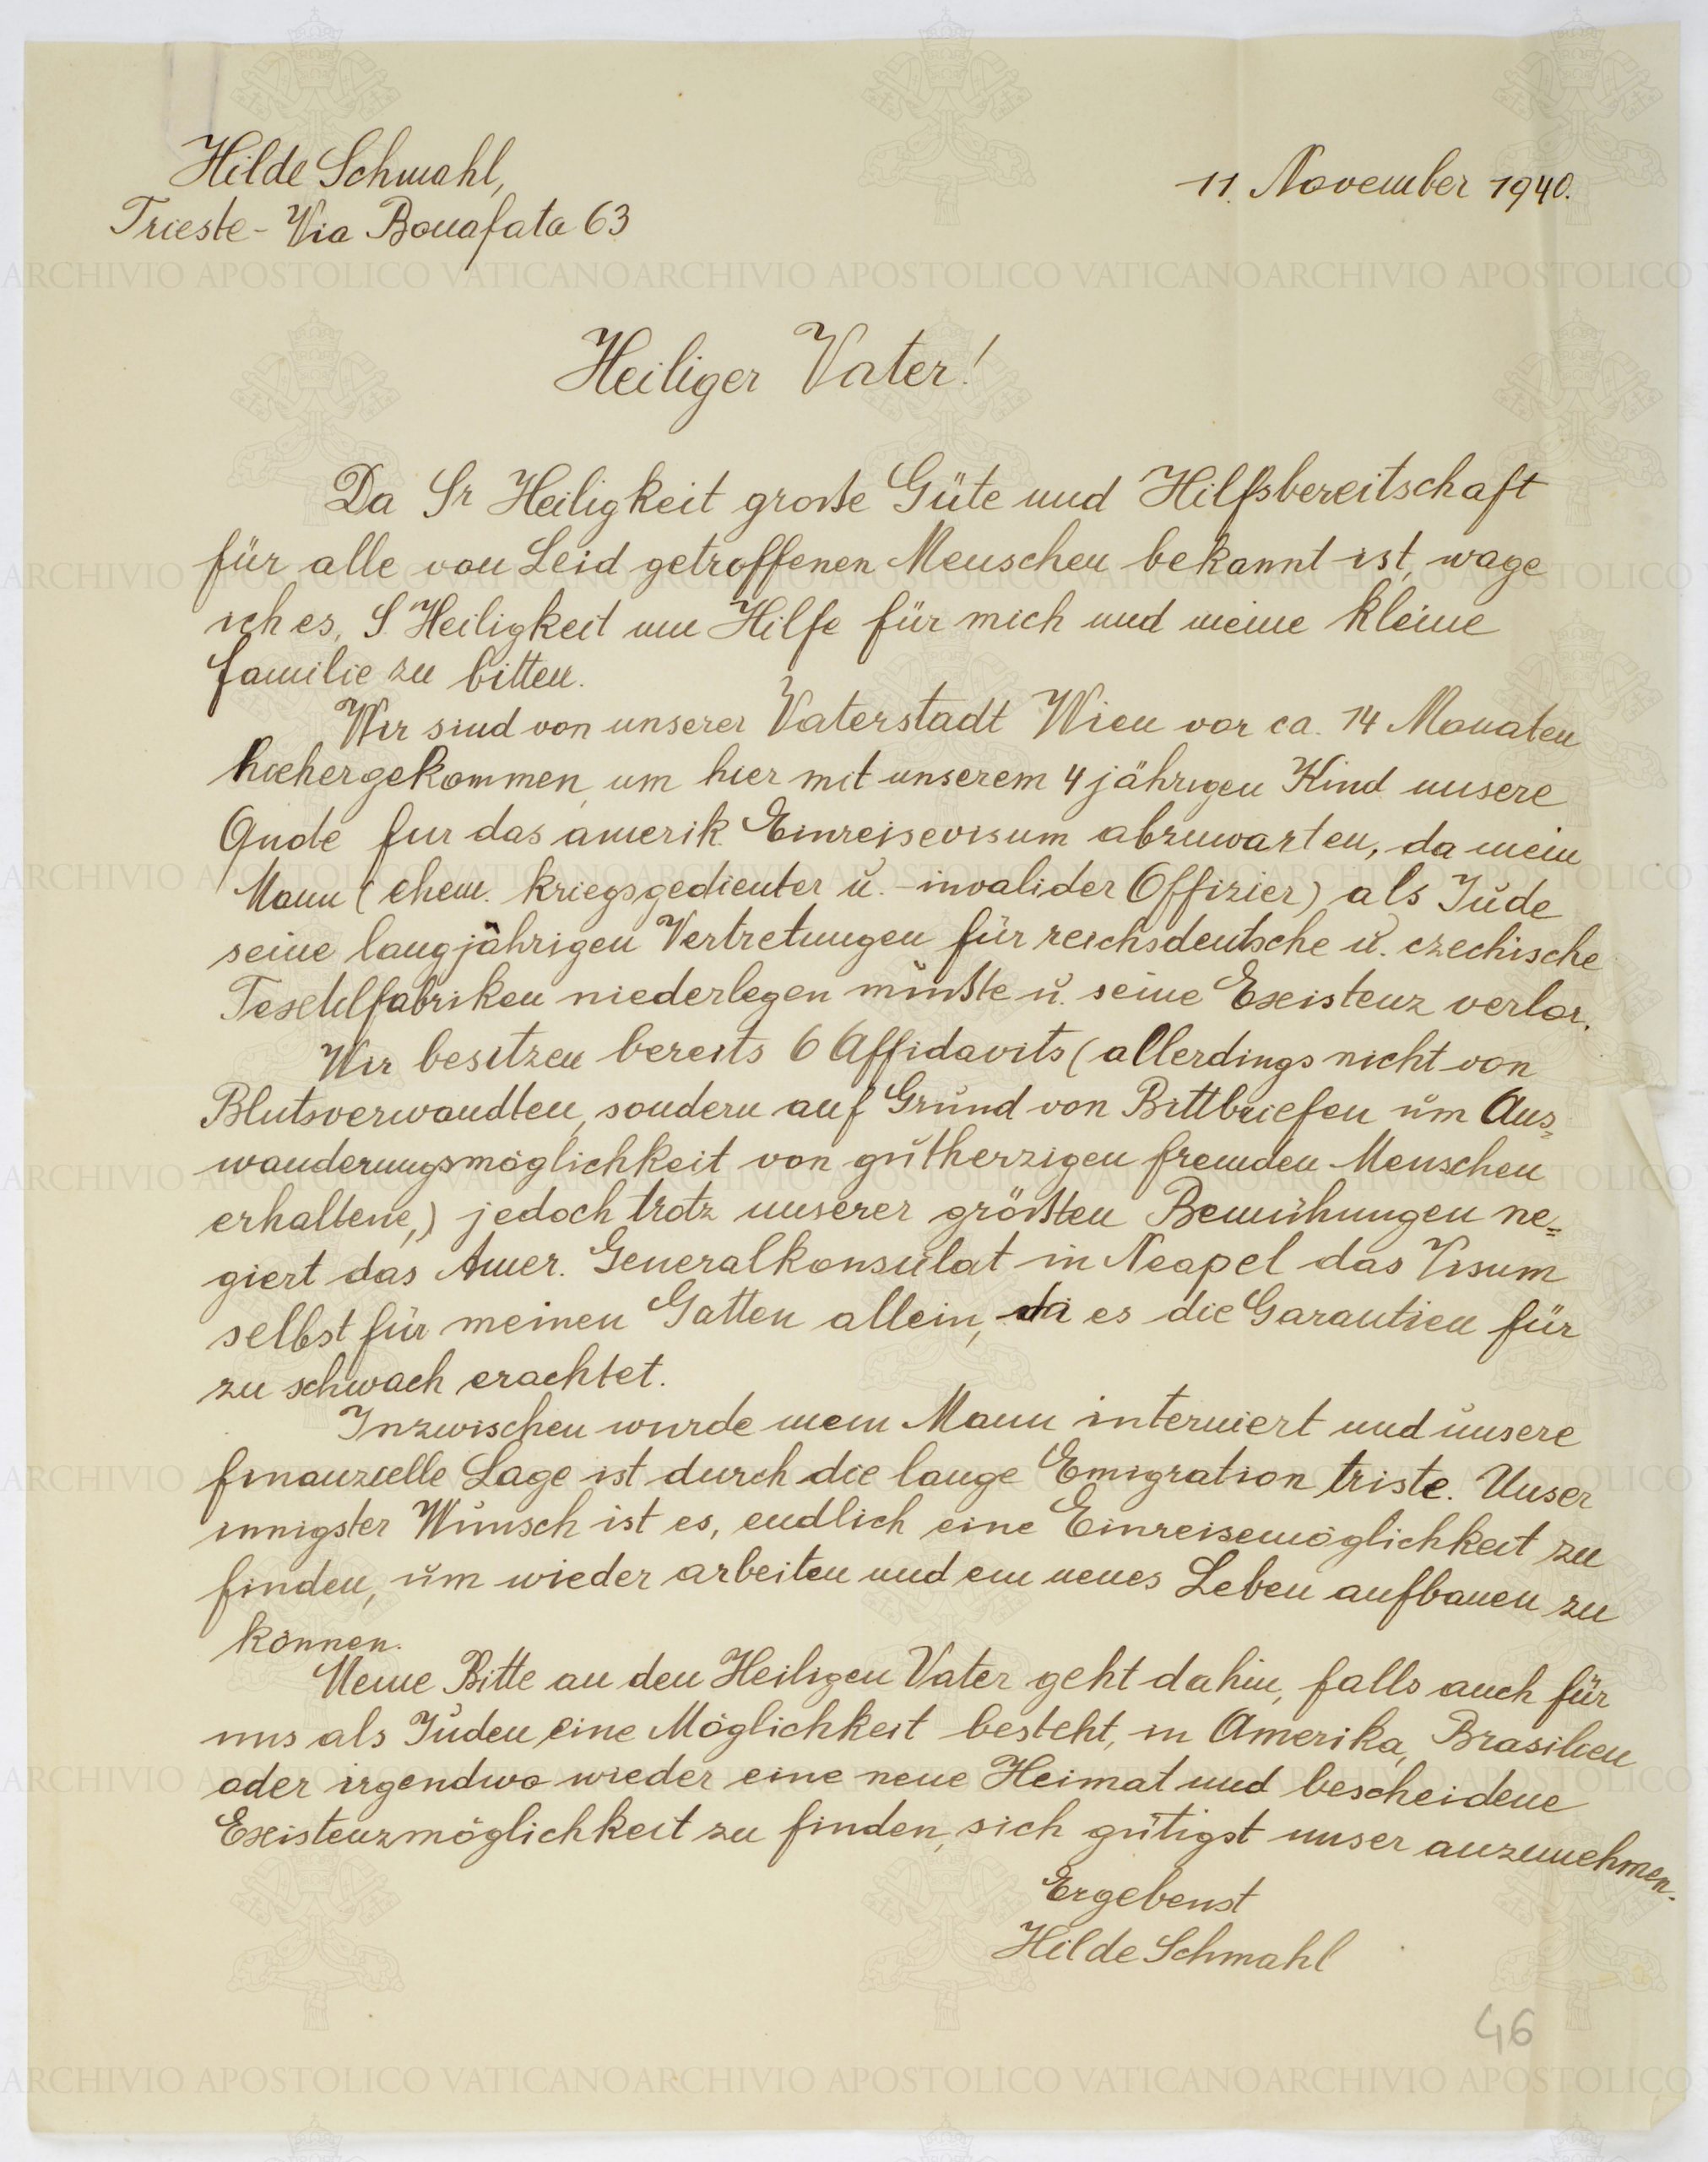 Hilde Schmahl,
Trieste - Via Bonafata 63
11. November 1940.
Heiliger Vater!
Da Sr Heiligkeit große Güte und Hilfsbereitschaft
für alle von Leid getroffenen Menschen bekannt ist, wage
ich es, S. Heiligkeit um Hilfe für mich und meine kleine
Familie zu bitten.
Wir sind von unserer Vaterstadt Wien vor ca. 14 Monaten
hiehergekommen, um hier mit unserem 4 jährigen Kind unsere
Quote für das amerik. Einreisevisum abzuwarten, da mein
Mann (ehem. kriegsgedienter u. -invalider Offizier) als Jude
seine langjährigen Vertretungen für reichsdeutsche u. czechische
Textilfabriken niederlegen mußte u. seine Existenz verlor.
Wir besitzen bereits 6 Affidavits (allerdings nicht von
Blutsverwandten, sondern auf Grund von Bittbriefen um Aus=
wanderungsmöglichkeit von gutherzigen fremden Menschen
erhaltene,) jedoch trotz unserer größten Bemühungen ne=
giert das Amer. Generalkonsulat in Neapel das Visum
selbst für meinen Gatten allein, da es die Garantien für
zu schwach erachtet.
Inzwischen wurde mein Mann interniert und unsere
finanzielle Lage ist durch die lange Emigration triste. Unser
innigster Wunsch ist es, endlich eine Einreisemöglichkeit zu
finden, um wieder arbeiten und ein neues Leben aufbauen zu
können.
Meine Bitte an den Heiligen Vater geht dahin, falls auch für
uns als Juden eine Möglichkeit besteht, in Amerika, Brasilien
oder irgendwo wieder eine neue Heimat und bescheidene
Existenzmöglichkeit zu finden, sich gütigst unser anzunehmen.
Ergebenst
Hilde Schmahl
46
ARCHIVIO APOSTOLICO VATICANO